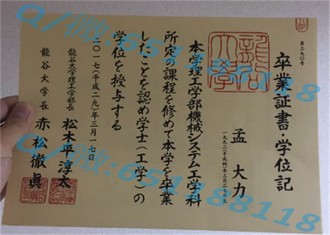 卒業証書・学位記
孟 大力
本学理工学部機械システム工学科
所定の課程を修めて本学を卒業
したことを認め学士(工学)の
学位を授与する
二〇一七(平成二九)年三月一七日
龍谷大学理工学部長 松木平淳太
龍谷大学長 赤松徹眞